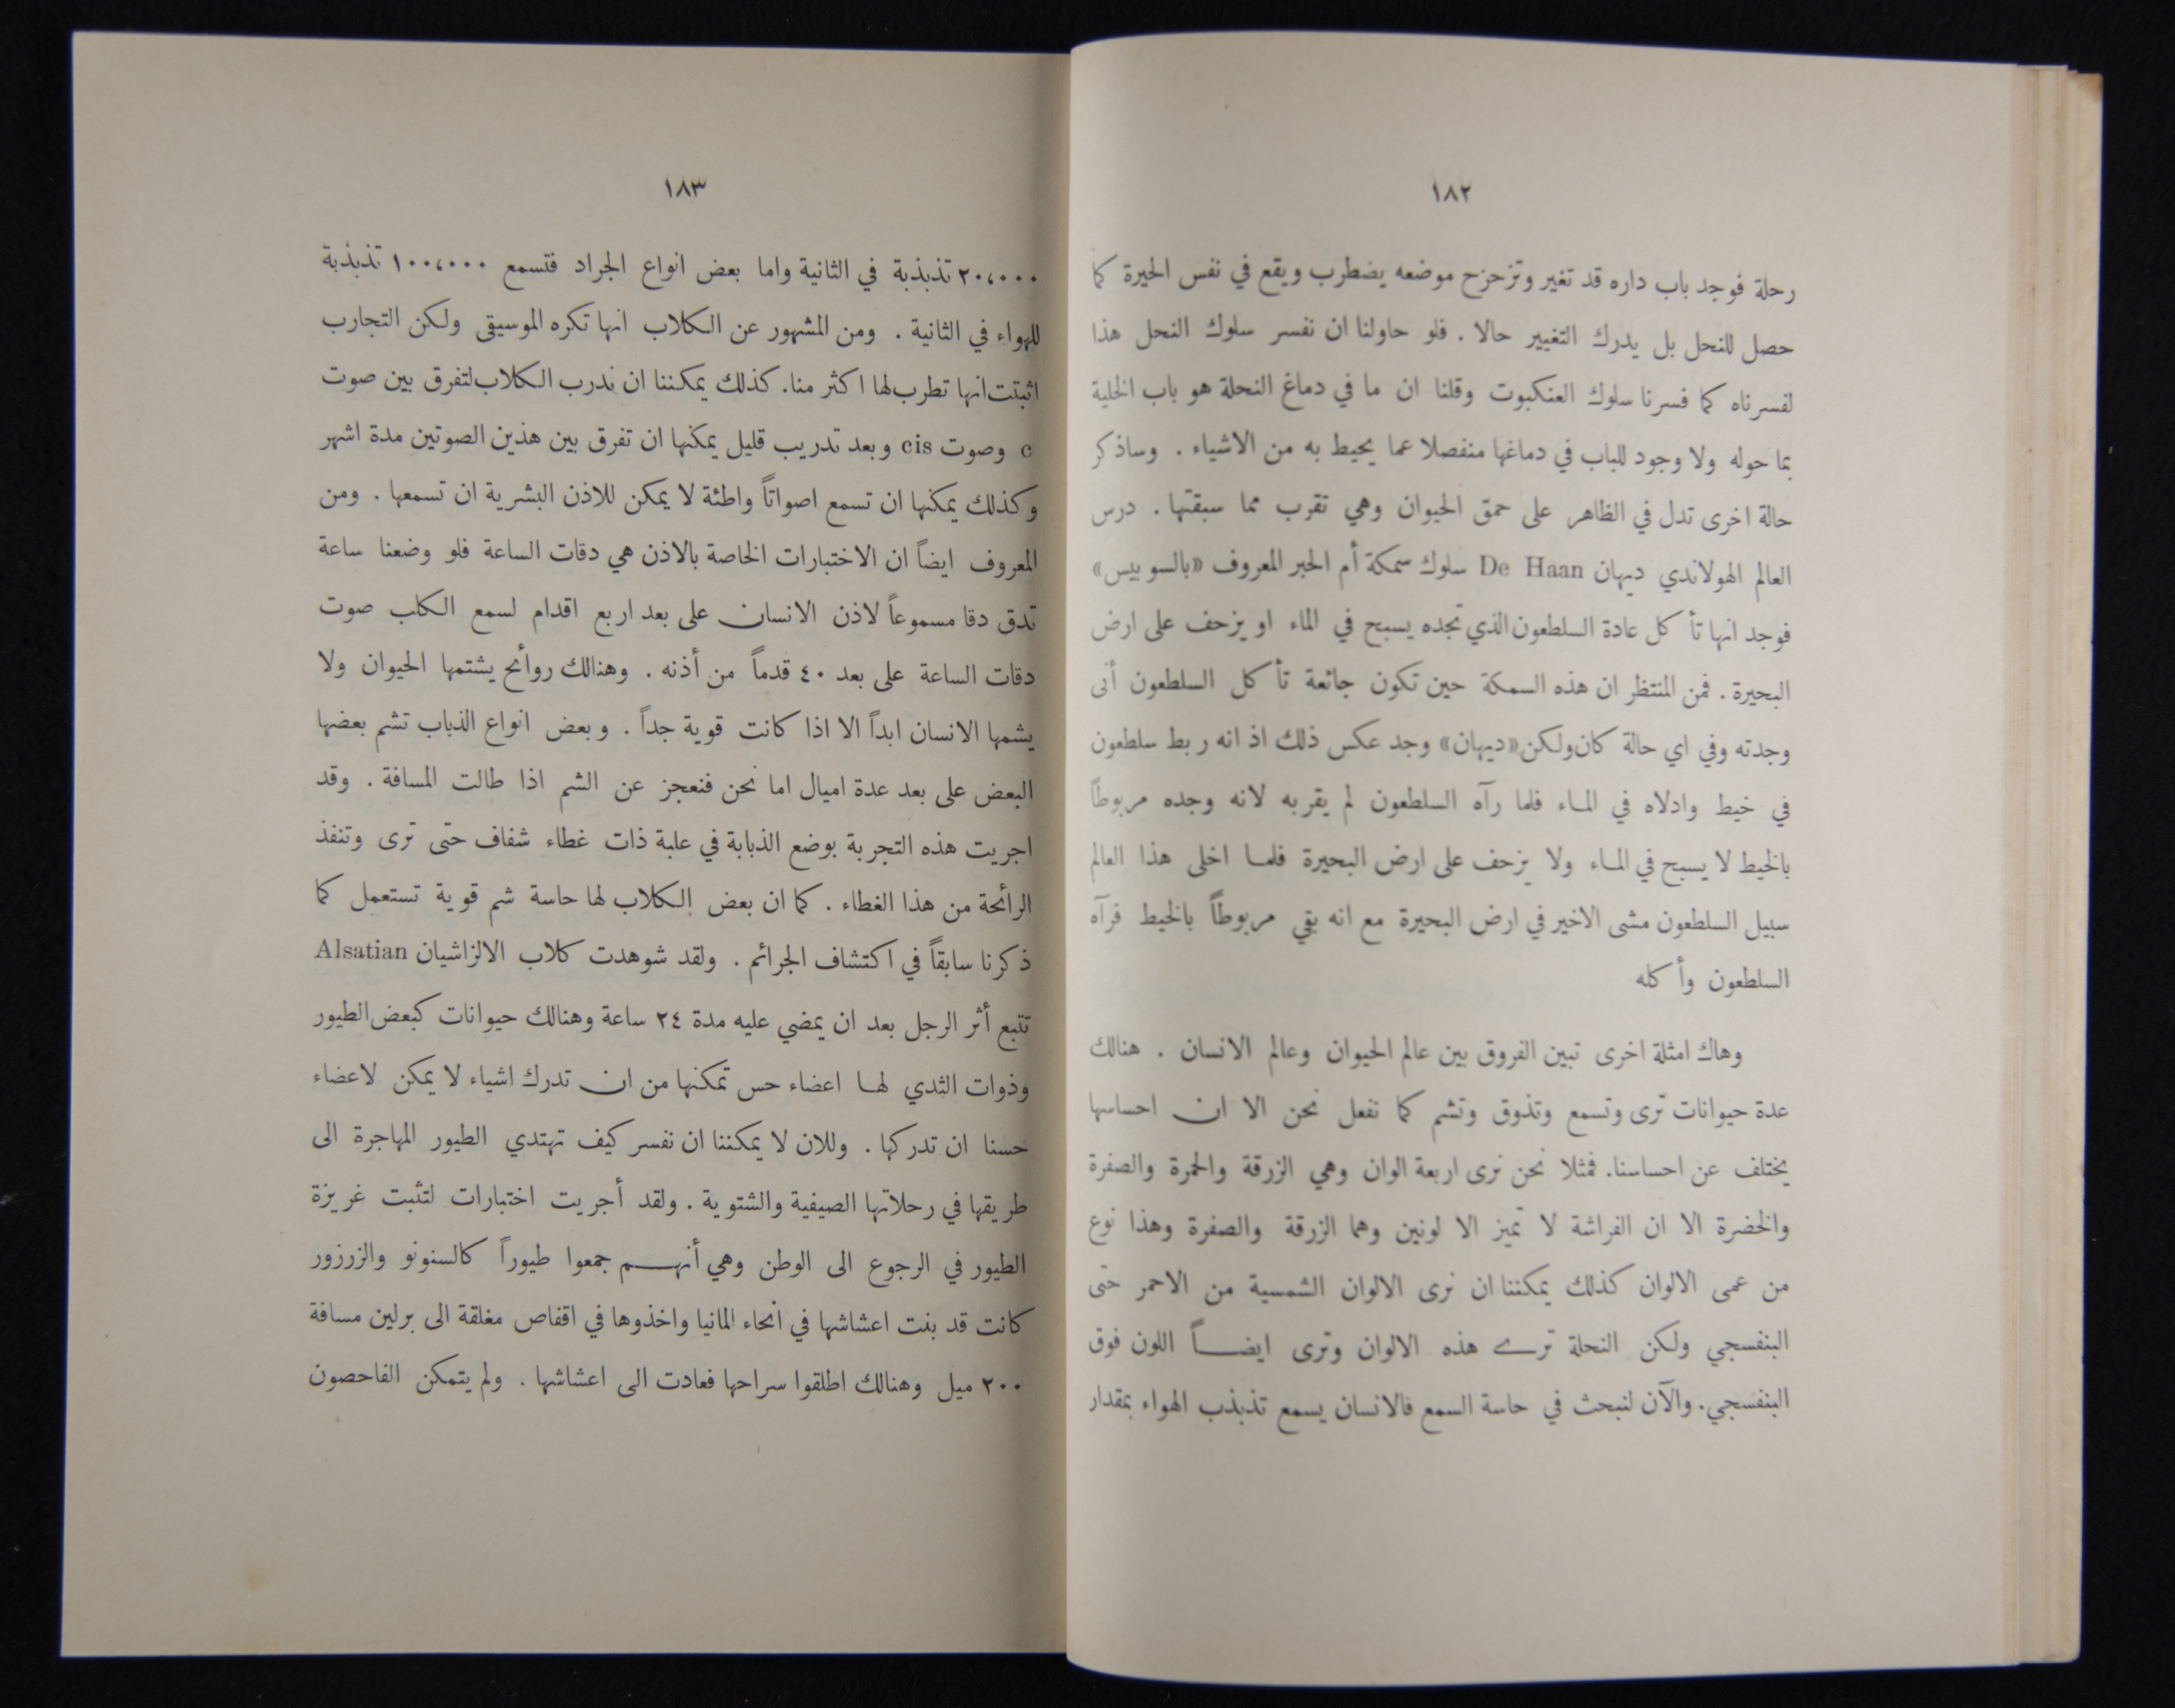 ١٨٢
رحلة فوجد باب داره قد تغير وتزحزح موضعه يضطرب ويقع في نفس الحيرة كما
حصل للنحل بل يدرك التغيير حالا . فلو حاولنا ان نفسر سلوك النحل هذا
لفسرناه كما فسرنا سلوك العنكبوت وقلنا ان ما في دماغ النحلة هو باب الخلية
بما حوله ولا وجود للباب في دماغها منفصلا عما يحيط به من الاشياء . وساذكر
حالة اخرى تدل في الظاهر على حمق الحيوان وهي تقرب مما سبقتها . درس
العالم الهولاندي ديهان De Haan سلوك سمكة أم الحبر المعروف «بالسوبيس»
فوجد انها تأكل عادة السلطعون الذي تجده يسبح في الماء او يزحف على ارض
البحيرة . فمن المنتظر ان هذه السمكة حين تكون جائعة تأكل السلطعون أنى
وجدته وفي اي حالة كان ولكن «ديهان» وجد عكس ذلك اذ انه ربط سلطعون
في خيط وادلاه في الماء فلما رآه السلطعون لم يقربه لانه وجده مربوطاً
بالخيط لا يسبح في الماء ولا يزحف على ارض البحيرة فلما اخلى هذا العالم
سبيل السلطعون مشى الاخير في ارض البحيرة مع انه بقي مربوطاً بالخيط فرآه
السلطعون وأكله
وهاك امثلة اخرى تبين الفروق بين عالم الحيوان وعالم الانسان . هنالك
عدة حيوانات ترى وتسمع وتذوق وتشم كما نفعل نحن الا ان احساسها
يختلف عن احساسنا. فمثلا نحن نرى اربعة الوان وهي الزرقة والحمرة والصفرة
والخضرة الا ان الفراشة لا تميز الا لونين وهما الزرقة والصفرة وهذا نوع
من عمى الالوان كذلك يمكننا ان نرى الالوان الشمسية من الاحمر حتى
البنفسجي ولكن النحلة ترى هذه الالوان وترى ايضاً اللون فوق
البنفسجي. والآن لنبحث في حاسة السمع فالانسان يسمع تذبذب الهواء بمقدار
١٨٣
٢٠،٠٠٠ تذبذبة في الثانية واما بعض انواع الجراد فتسمع ١٠٠،٠٠٠ تذبذبة
للهواء في الثانية . ومن المشهور عن الكلاب انها تكره الموسيقى ولكن التجارب
اثبتت انها تطرب لها اكثر منا. كذلك يمكننا ان ندرب الكلاب لتفرق بين صوت
c وصوت cis وبعد تدريب قليل يمكنها ان تفرق بين هذين الصوتين مدة اشهر
وكذلك يمكنها ان تسمع اصواتاً واطئة لا يمكن للاذن البشرية ان تسمعها . ومن
المعروف ايضاً ان الاختبارات الخاصة بالاذن هي دقات الساعة فلو وضعنا ساعة
تدق دقا مسموعاً لاذن الانسان على بعد اربع اقدام لسمع الكلب صوت
دقات الساعة على بعد ٤٠ قدماً من أذنه . وهنالك روائح يشتمها الحيوان ولا
يشمها الانسان ابداً الا اذا كانت قوية جداً . وبعض انواع الذباب تشم بعضها
البعض على بعد عدة اميال اما نحن فنعجز عن الشم اذا طالت المسافة . وقد
اجريت هذه التجربة بوضع الذبابة في علبة ذات غطاء شفاف حتى ترى وتنفذ
الرائحة من هذا الغطاء . كما ان بعض الكلاب لها حاسة شم قوية تستعمل كما
ذكرنا سابقاً في اكتشاف الجرائم . ولقد شوهدت كلاب الالزاشيان Alsatian
تتبع أثر الرجل بعد ان يمضي عليه مدة ٢٤ ساعة وهنالك حيوانات كبعض الطيور
وذوات الثدي لها اعضاء حس تمكنها من ان تدرك اشياء لا يمكن لاعضاء
حسنا ان تدركها . وللان لا يمكننا ان نفسر كيف تهتدي الطيور المهاجرة الى
طريقها في رحلاتها الصيفية والشتوية . ولقد أجريت اختبارات لتثبت غريزة
الطيور في الرجوع الى الوطن وهي أنهم جمعوا طيوراً كالسنونو والزرزور
كانت قد بنت اعشاشها في انحاء المانيا واخذوها في اقفاص مغلقة الى برلين مسافة
٢٠٠ ميل وهنالك اطلقوا سراحها فعادت الى اعشاشها . ولم يتمكن الفاحصون